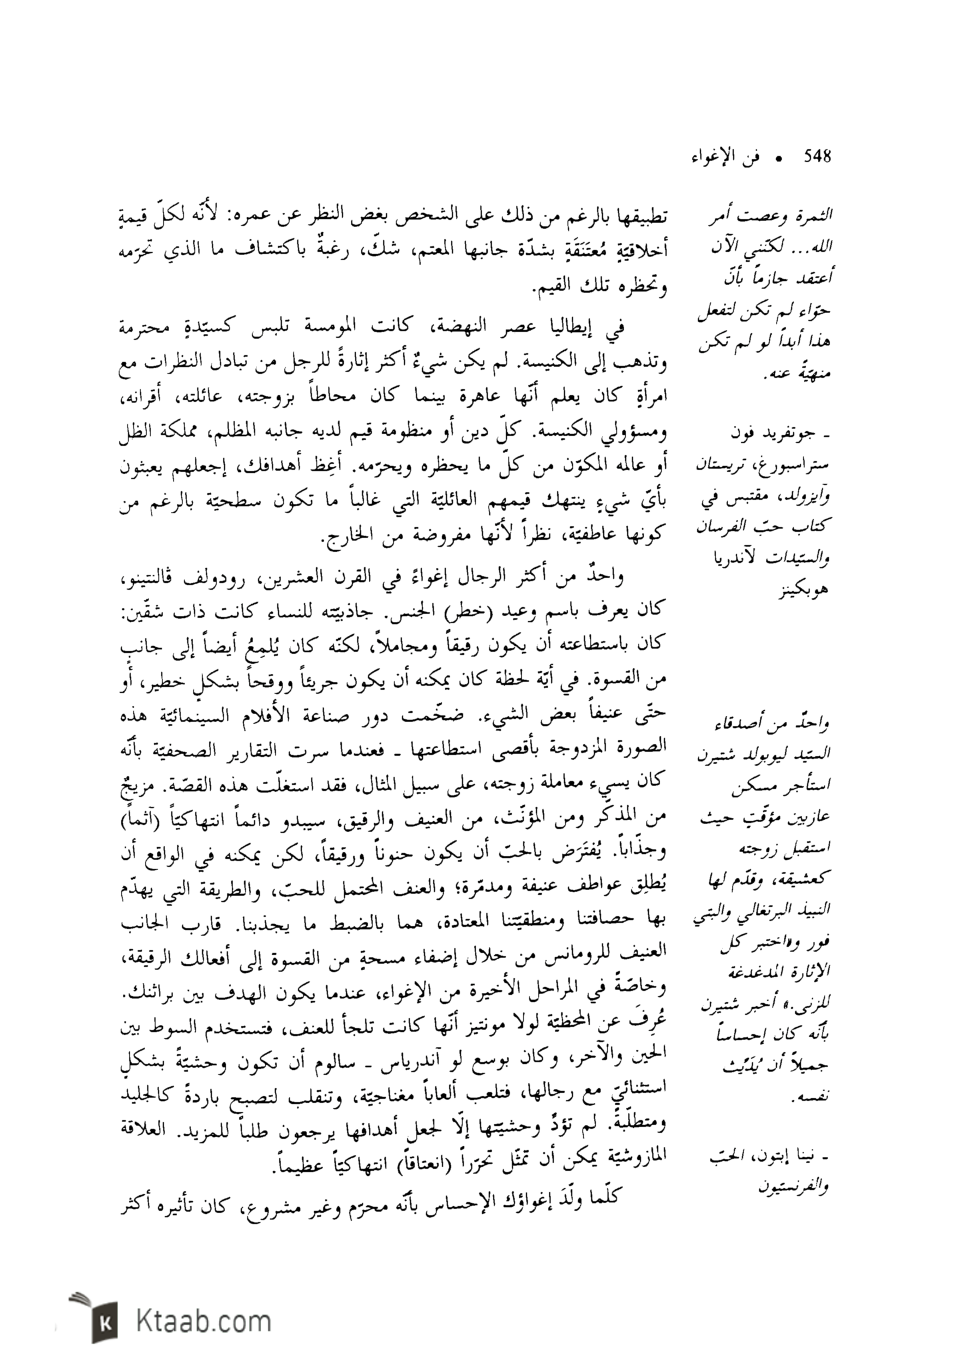 548 • فن الإغواء
تطبيقها بالرغم من ذلك على الشخص بغض النظر عن عمره: لأنّه لكلّ قيمةٍ
أخلاقيّةٍ مُعتَنَقَةٍ بشدّة جانبها المعتم، شكّ، رغبةٌ باكتشاف ما الذي تحرّمه
وتحظره تلك القيم.
في إيطاليا عصر النهضة، كانت المومسة تلبس كسيّدةٍ محترمة
وتذهب إلى الكنيسة. لم يكن شيءٌ أكثر إثارةً للرجل من تبادل النظرات مع
امرأةٍ كان يعلم أنّها عاهرة بينما كان محاطاً بزوجته، عائلته، أقرانه،
ومسؤولي الكنيسة. كلّ دين أو منظومة قيم لديه جانبه المظلم، مملكة الظل
أو عالمه المكوّن من كلّ ما يحظره ويحرّمه. أغِظ أهدافك، إجعلهم يعبثون
بأيّ شيءٍ ينتهك قيمهم العائليّة التي غالباً ما تكون سطحيّة بالرغم من
كونها عاطفيّة، نظراً لأنّها مفروضة من الخارج.
واحدٌ من أكثر الرجال إغواءً في القرن العشرين، رودولف ڤالنتينو،
كان يعرف باسم وعيد (خطر) الجنس. جاذبيّته للنساء كانت ذات شقّين:
كان باستطاعته أن يكون رقيقاً ومجاملاً، لكنّه كان يُلمِعُ أيضاً إلى جانبٍ
من القسوة. في أيّة لحظة كان يمكنه أن يكون جريئاً ووقحاً بشكلٍ خطير، أو
حتّى عنيفاً بعض الشيء. ضخّمت دور صناعة الأفلام السينمائيّة هذه
الصورة المزدوجة بأقصى استطاعتها ـ فعندما سرت التقارير الصحفيّة بأنّه
كان يسيء معاملة زوجته، على سبيل المثال، فقد استغلّت هذه القصّة. مزيجٌ
من المذكّر ومن المؤنّث، من العنيف والرقيق، سيبدو دائماً انتهاكيّاً (آثماً)
وجذّاباً. يُفتَرَض بالحبّ أن يكون حنوناً ورقيقاً، لكن يمكنه في الواقع أن
يُطلِق عواطف عنيفة ومدمّرة؛ والعنف المحتمل للحبّ، والطريقة التي يهدّم
بها حصافتنا ومنطقيّتنا المعتادة، هما بالضبط ما يجذبنا. قارب الجانب
العنيف للرومانس من خلال إضفاء مسحةٍ من القسوة إلى أفعالك الرقيقة،
وخاصّةً في المراحل الأخيرة من الإغواء، عندما يكون الهدف بين براثنك.
عُرِفَ عن المحظيّة لولا مونتيز أنّها كانت تلجأ للعنف، فتستخدم السوط بين
الحين والآخر، وكان بوسع لو آندرياس ـ سالوم أن تكون وحشيّةً بشكلٍ
استثنائيّ مع رجالها، فتلعب ألعاباً مغناجيّة، وتنقلب لتصبح باردةً كالجليد
ومتطلّبةً. لم تؤدِّ وحشيّتها إلّا لجعل أهدافها يرجعون طلباً للمزيد. العلاقة
المازوشيّة يمكن أن تمثّل تحرّراً (انعتاقاً) انتهاكيّاً عظيماً.
كلّما ولّدَ إغواؤك الإحساس بأنّه محرّم وغير مشروع، كان تأثيره أكثر
الثمرة وعصت أمر
الله... لكنّني الآن
أعتقد جازماً بأنّ
حوّاء لم تكن لتفعل
هذا أبداً لو لم تكن
منهيّةً عنه.
ـ جوتفريد فون
ستراسبورغ، تريستان
وآيزولد، مقتبس في
كتاب حبّ الفرسان
والسيّدات لآندريا
هوبكينز
واحدٌ من أصدقاء
السيّد ليوبولد شتيرن
استأجر مسكن
عازبين مؤقّتٍ حيث
استقبل زوجته
كعشيقة، وقدّم لها
النبيذ البرتغالي والبتي
فور و«اختبر كل
الإثارة المدغدغة
للزنى.» أخبر شتيرن
بأنّه كان إحساساً
جميلاً أن يُدَيِّث
نفسه.
ـ نينا إبتون، الحبّ
والفرنسيّون
Ktaab.com